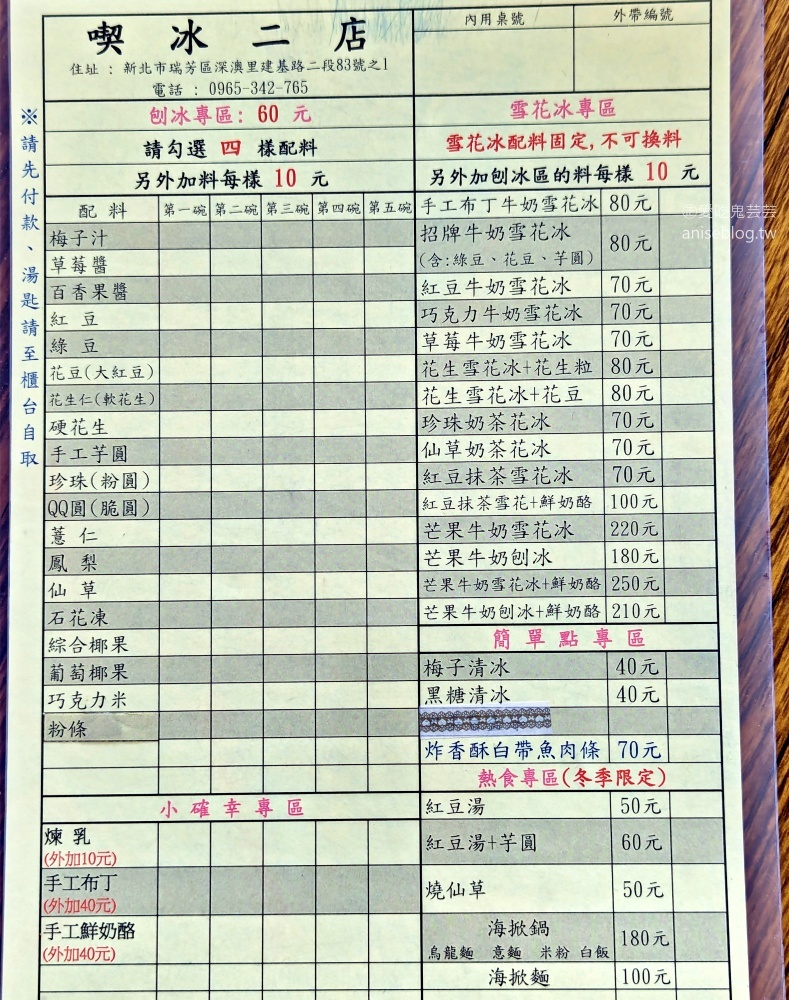 喫冰二店
住址：新北市瑞芳區深澳里建基路二段83號之1
電話：0965-342-765
內用桌號 外帶編號
※請先付款、湯匙請至櫃台自取
刨冰專區：60 元
請勾選 四 樣配料
另外加料每樣 10 元
配料 第一碗 第二碗 第三碗 第四碗 第五碗
梅子汁
草莓醬
百香果醬
紅豆
綠豆
花豆(大紅豆)
花生仁(軟花生)
硬花生
手工芋圓
珍珠(粉圓)
QQ圓(脆圓)
薏仁
鳳梨
仙草
石花凍
綜合椰果
葡萄椰果
巧克力米
粉條
小確幸專區
煉乳
(外加10元)
手工布丁
(外加40元)
手工鮮奶酪
(外加40元)
雪花冰專區
雪花冰配料固定,不可換料
另外加刨冰區的料每樣 10 元
手工布丁牛奶雪花冰 80元
招牌牛奶雪花冰 80元
(含:綠豆、花豆、芋圓)
紅豆牛奶雪花冰 70元
巧克力牛奶雪花冰 70元
草莓牛奶雪花冰 70元
花生雪花冰+花生粒 80元
花生雪花冰+花豆 80元
珍珠奶茶花冰 70元
仙草奶茶花冰 70元
紅豆抹茶雪花冰 70元
紅豆抹茶雪花+鮮奶酪 100元
芒果牛奶雪花冰 220元
芒果牛奶刨冰 180元
芒果牛奶雪花冰+鮮奶酪 250元
芒果牛奶刨冰+鮮奶酪 210元
簡單點專區
梅子清冰 40元
黑糖清冰 40元
炸香酥白帶魚肉條 70元
熱食專區(冬季限定)
紅豆湯 50元
紅豆湯+芋圓 60元
燒仙草 50元
海掀鍋 180元
烏龍麵 意麵 米粉 白飯
海掀麵 100元
aniseblog.tw